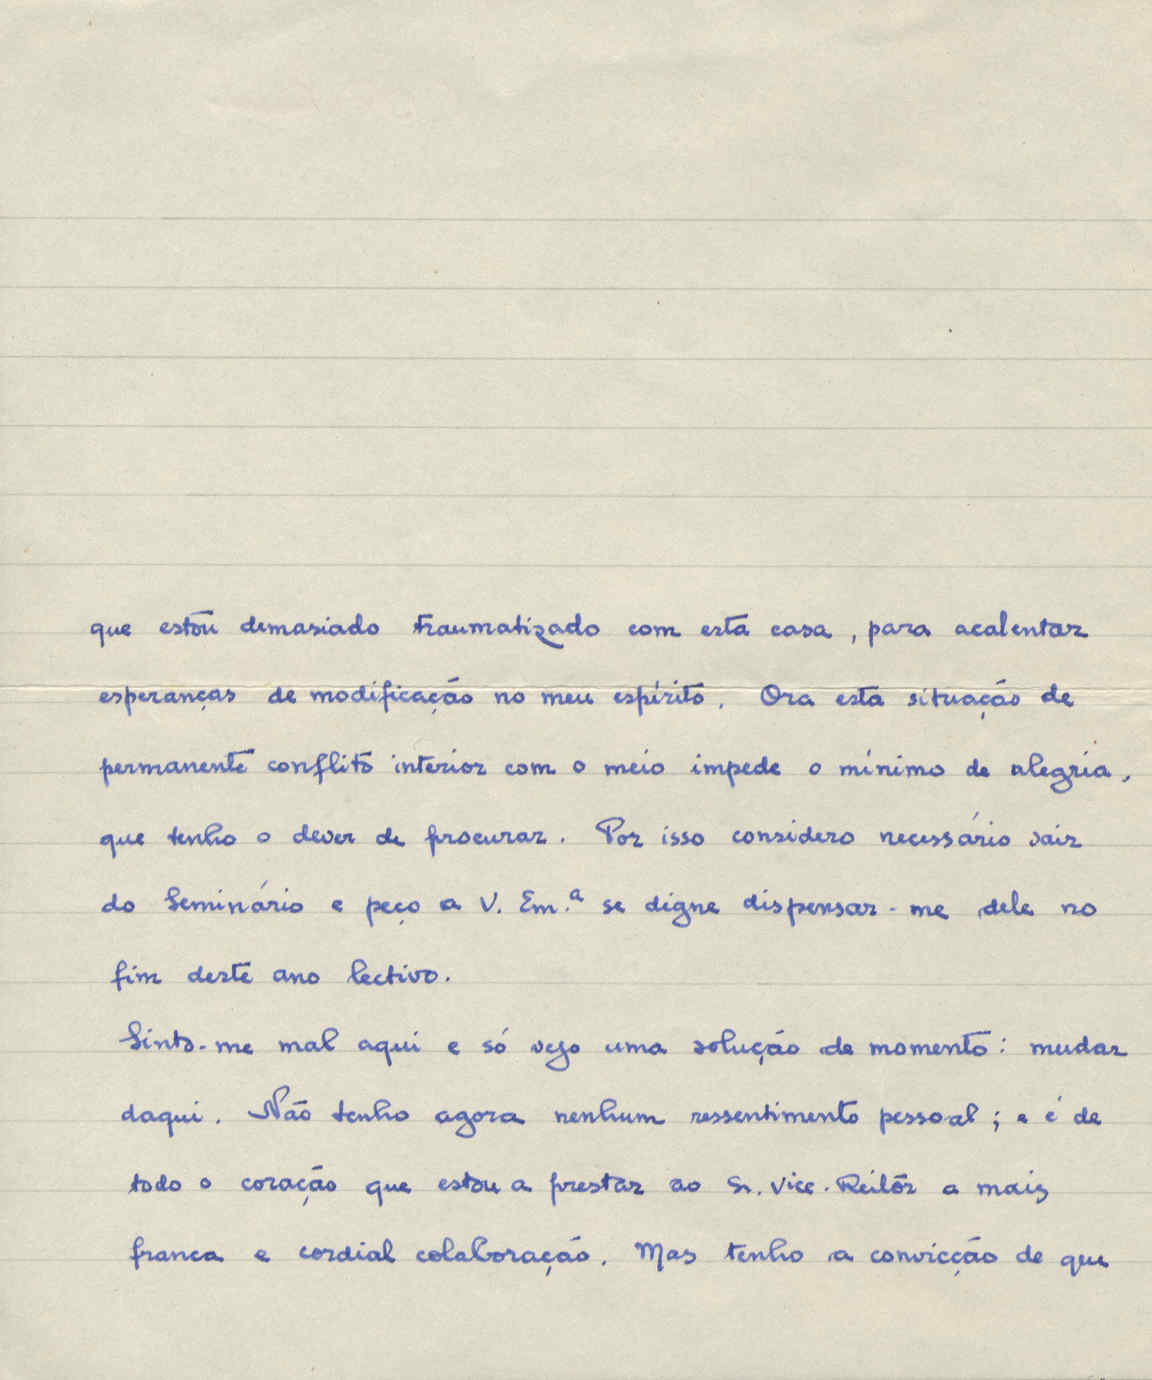 que estou demasiado traumatizado com esta casa, para acalentar
esperanças de modificação no meu espírito. Ora esta situação de
permanente conflito interior com o meio impede o mínimo de alegria,
que tenho o dever de procurar. Por isso considero necessário sair
do Seminário e peço a V. Em.ª se digne dispensar-me dele no
fim deste ano lectivo.
Sinto-me mal aqui e só vejo uma solução de momento: mudar
daqui. Não tenho agora nenhum ressentimento pessoal; e é de
todo o coração que estou a prestar ao Sr. Vice-Reitor a mais
franca e cordial colaboração. Mas tenho a convicção de que